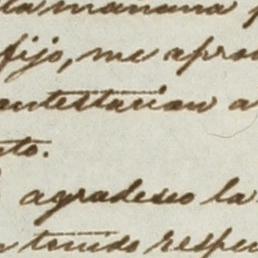 la mañana
fijo, me apro
ontestarian a
nto.
agradesco la
tenido respe